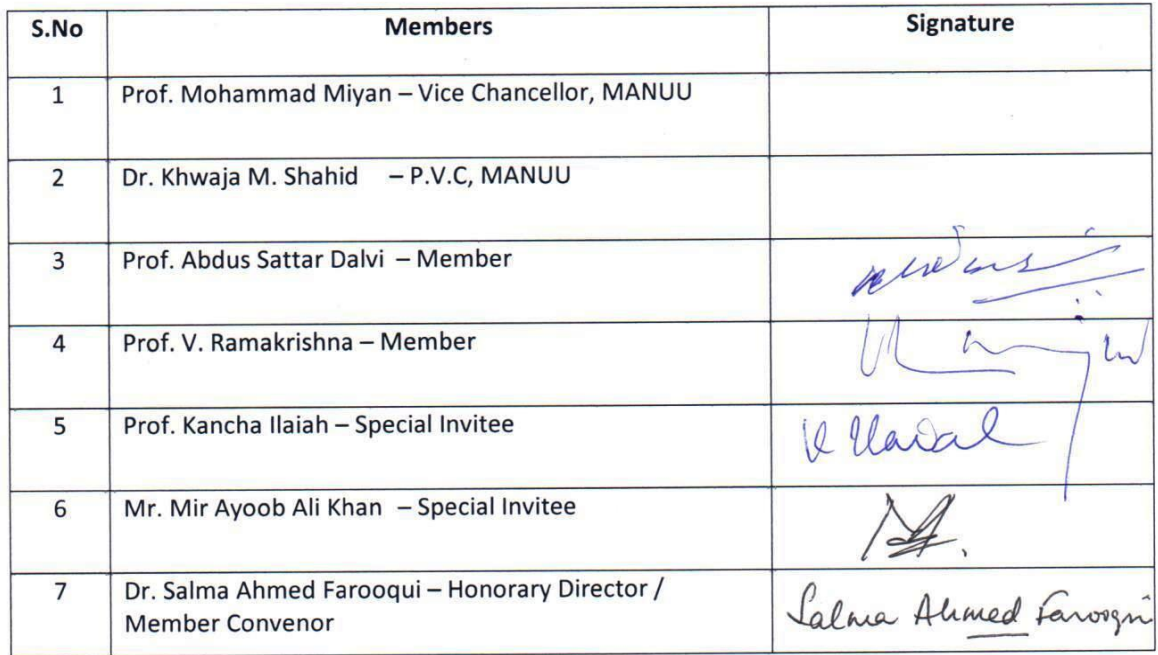 S.No Members Signature
1 Prof. Mohammad Miyan – Vice Chancellor, MANUU
2 Dr. Khwaja M. Shahid – P.V.C, MANUU
3 Prof. Abdus Sattar Dalvi – Member
4 Prof. V. Ramakrishna – Member
5 Prof. Kancha Ilaiah – Special Invitee
6 Mr. Mir Ayoob Ali Khan – Special Invitee
7 Dr. Salma Ahmed Farooqui – Honorary Director / Salma Ahmed Farooqui
Member Convenor